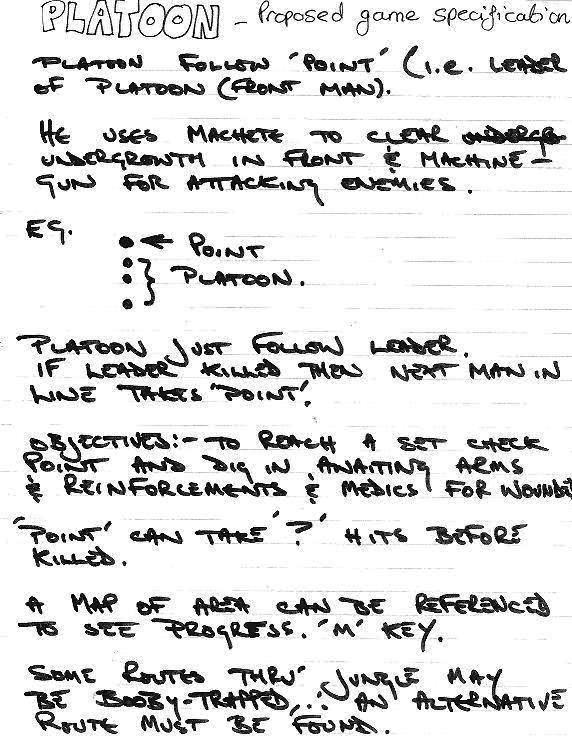 PLATOON - Proposed game specification
PLATOON FOLLOW 'POINT' (I.E. LEADER
OF PLATOON (FRONT MAN).
HE USES MACHETE TO CLEAR
UNDERGROWTH IN FRONT & MACHINE-
GUN FOR ATTACKING ENEMIES.
EG.
← POINT
} PLATOON.
PLATOON JUST FOLLOW LEADER.
IF LEADER KILLED THEN NEXT MAN IN
LINE TAKES 'POINT'.
OBJECTIVES:- TO REACH A SET CHECK
POINT AND DIG IN AWAITING ARMS
& REINFORCEMENTS & MEDICS FOR WOUNDED
'POINT' CAN TAKE '?' HITS BEFORE
KILLED.
A MAP OF AREA CAN BE REFERENCED
TO SEE PROGRESS. 'M' KEY.
SOME ROUTES THRU' JUNGLE MAY
BE BOOBY-TRAPPED, ∴ AN ALTERNATIVE
ROUTE MUST BE FOUND.